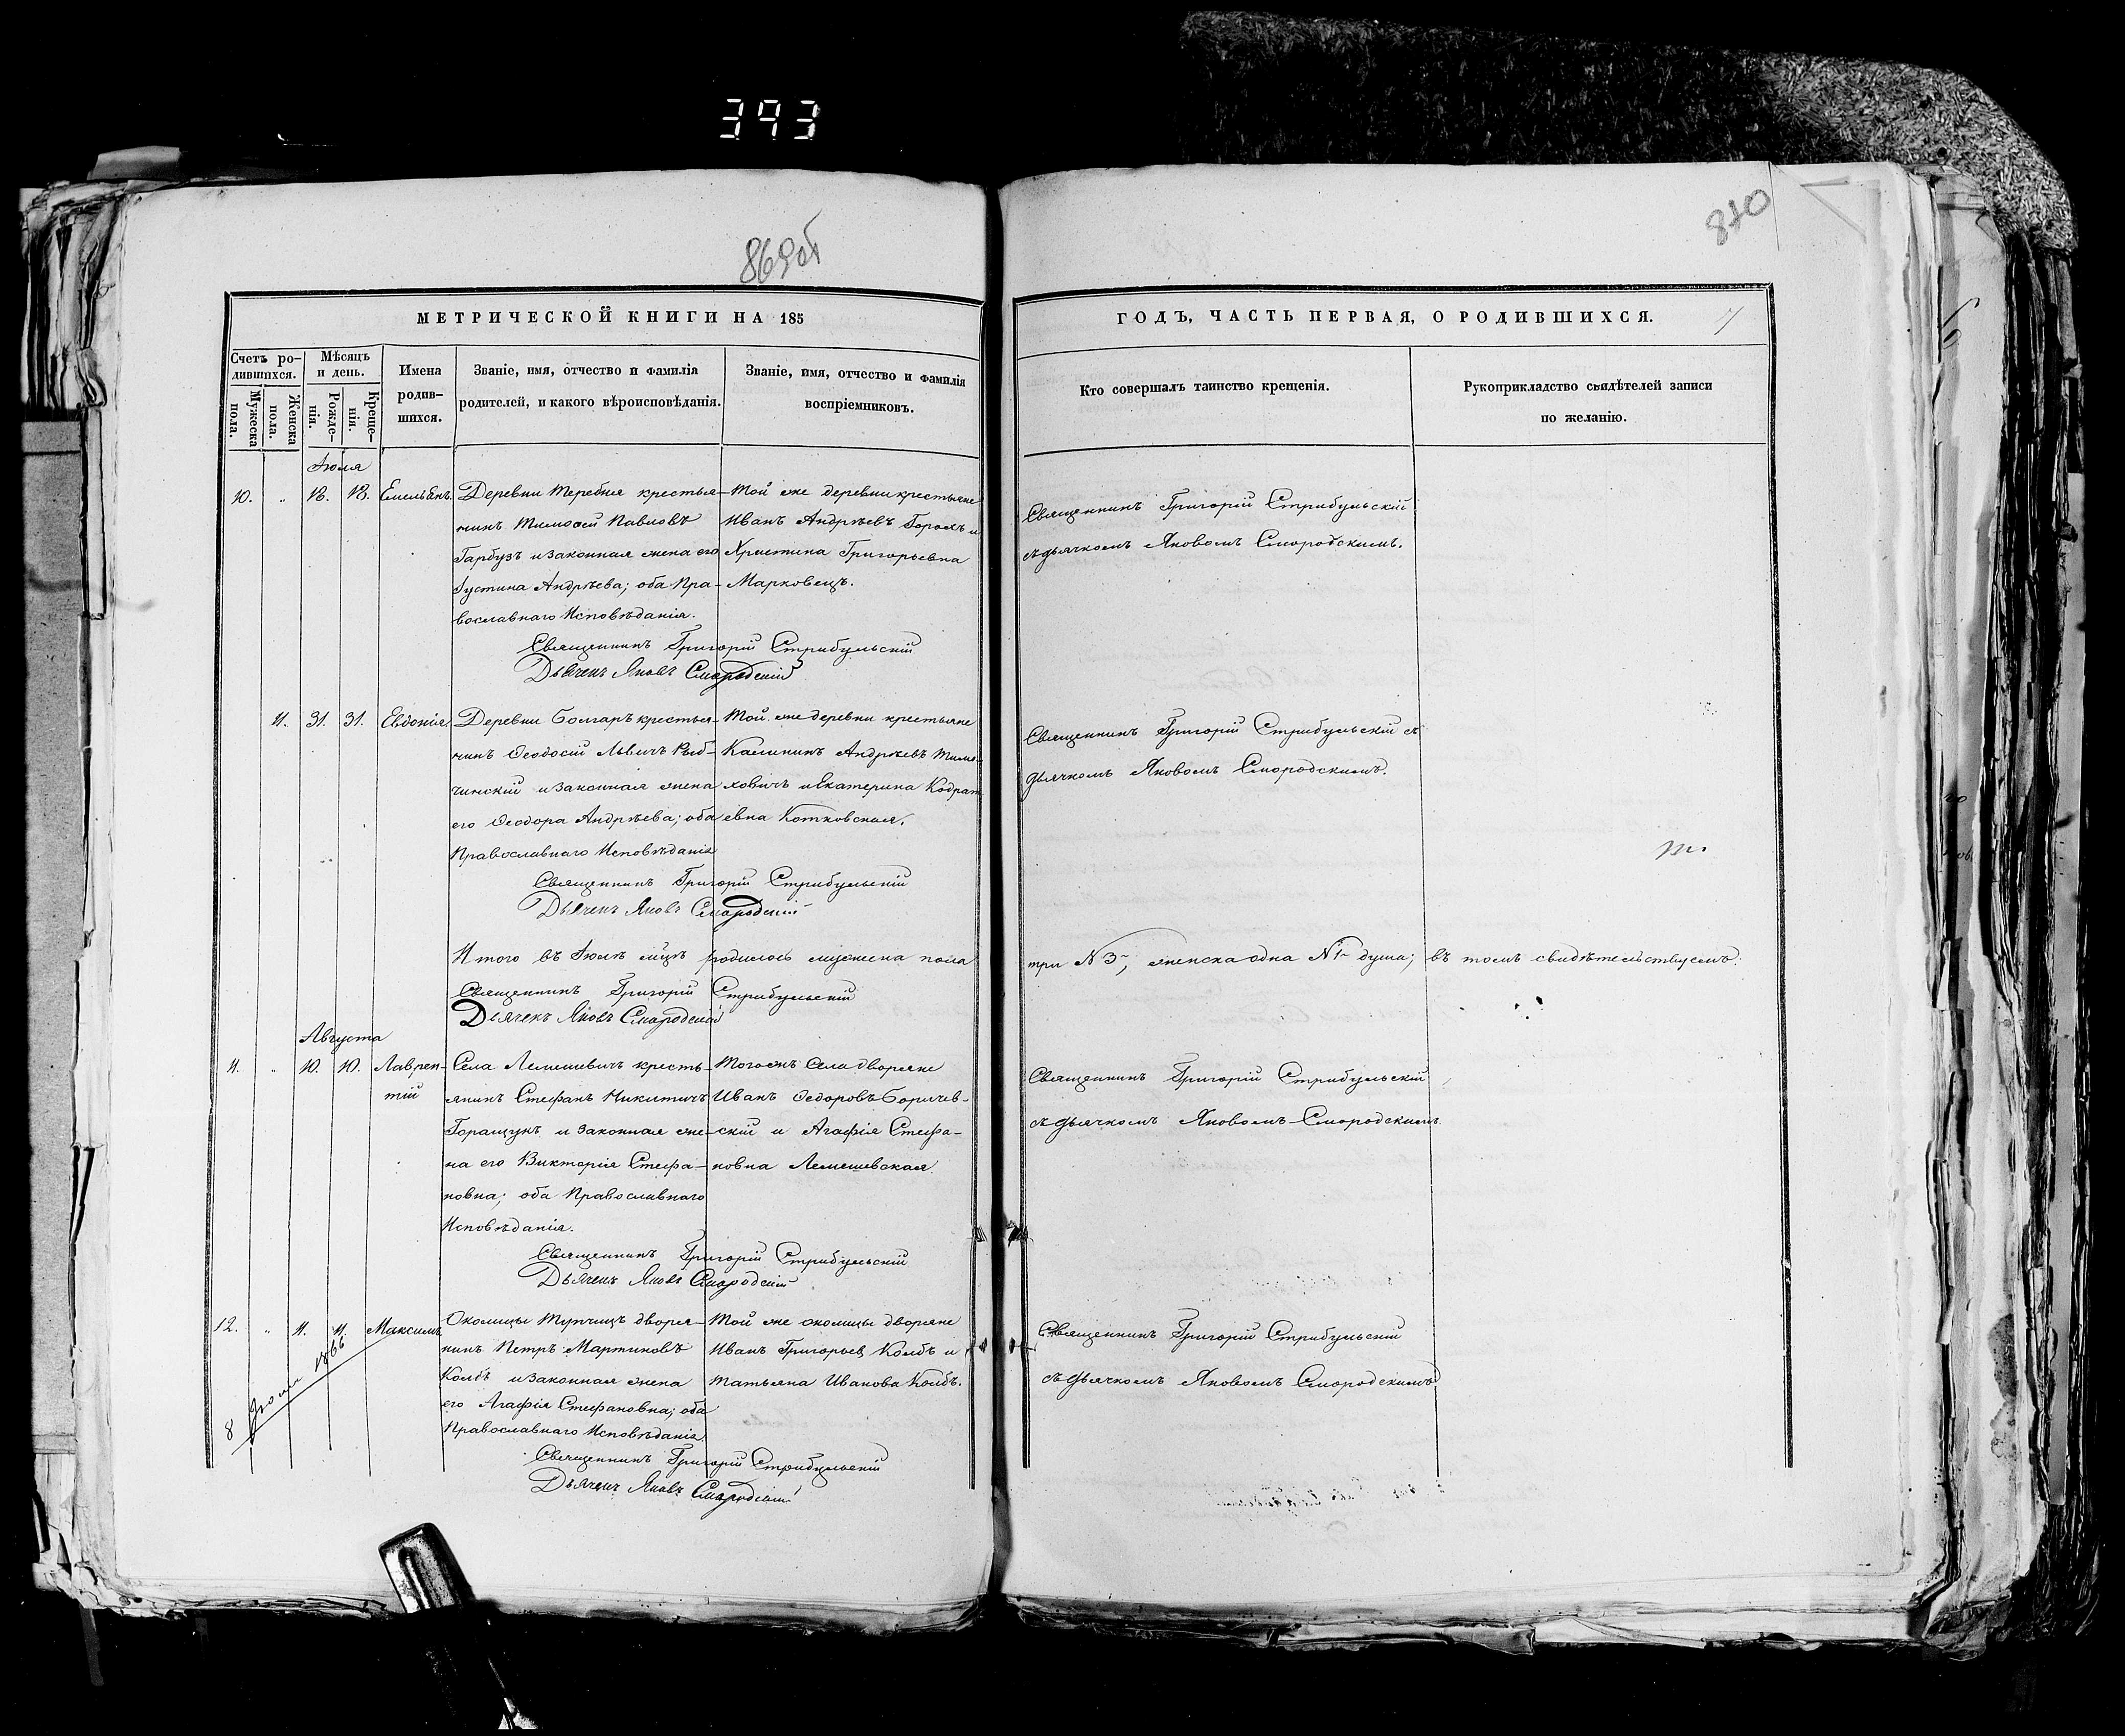 393
869об
870
МЕТРИЧЕСКОЙ КНИГИ НА 185
ГОДЪ, ЧАСТЬ ПЕРВАЯ, О РОДИВШИХСЯ.
7
Счетъ ро-
дившихся.
Мужеска
пола.
Женска
пола.
Мѣсяцъ
и день.
Рожде-
нія.
Креще-
нія.
Имена
родив-
шихся.
Званіе, имя, отчество и фамилія
родителей, и какого вѣроисповѣданія.
Званіе, имя, отчество и фамилія
воспріемниковъ.
Кто совершалъ таинство крещенія.
Рукоприкладство свидѣтелей записи
по желанію.
Іюля
10. " 18. 18. Емельянъ.
Деревни Теребня крестья-
нинъ Тимоѳей Павловъ
Гарбузъ и законная жена его
Іустина Андрѣева; оба Пра-
вославнаго Исповѣданія.
Той же деревни крестьяне
Иванъ Андрѣевъ и
Христина Григорьевна
Марковецъ.
Священникъ Григорій Стрибульскій
съ дьячкомъ Яковомъ Смородскимъ.
Священникъ Григорій Стрибульскій
Дьячекъ Яковъ Смородскій
31. 31. Евдокія
Деревни Болгаръ крестья-
нинъ Ѳеодосій Львичъ Рыб-
чинскій и законная жена
его Ѳеодора Андрѣева; оба
Православнаго Исповѣданія
Той же деревни крестьяне
Калиникъ Андрѣевъ Тимо-
ховичъ и Екатерина Кодрат
евна Котковская.
Священникъ Григорій Стрибульскій съ
дьячкомъ Яковомъ Смородскимъ.
Священникъ Григорій Стрибульскій
Дьячекъ Яковъ Смородскій
Итого въ Іюлѣ мцѣ родилось мужеска пола
три N 3, женска одна N 1 душа; въ томъ свидѣтельствуемъ:
Священникъ Григорій Стрибульскій
Дьячекъ Яковъ Смородскій
Августа
11. " 10. 10. Лаврен-
тій
Села Лемешевичъ кресть-
янинъ Стефанъ Никитичъ
Горащукъ и законная же-
на его Викторія Стефа-
новна; оба Православнаго
Исповѣданія.
Тогожъ Села дворяне
Иванъ Ѳедоровъ Боричев-
скій и Агафія Стефа-
новна Лемешевская.
Священникъ Григорій Стрибульскій
съ дьячкомъ Яковомъ Смородскимъ.
Священникъ Григорій Стрибульскій
Дьячекъ Яковъ Смородскій
12. " 11. 11. Максимъ
Околицы Тупчицъ дворя-
нинъ Петръ Мартиновъ
Колбъ и законная жена
его Агафія Стефановна; оба
Православнаго Исповѣданія.
Той же околицы дворяне
Иванъ Григорьев Колбъ и
Татьяна Иванова Колбъ.
Священникъ Григорій Стрибульскій
съ дьячкомъ Яковомъ Смородскимъ
8 1866
Священникъ Григорій Стрибульскій
Дьячекъ Яковъ Смородскій